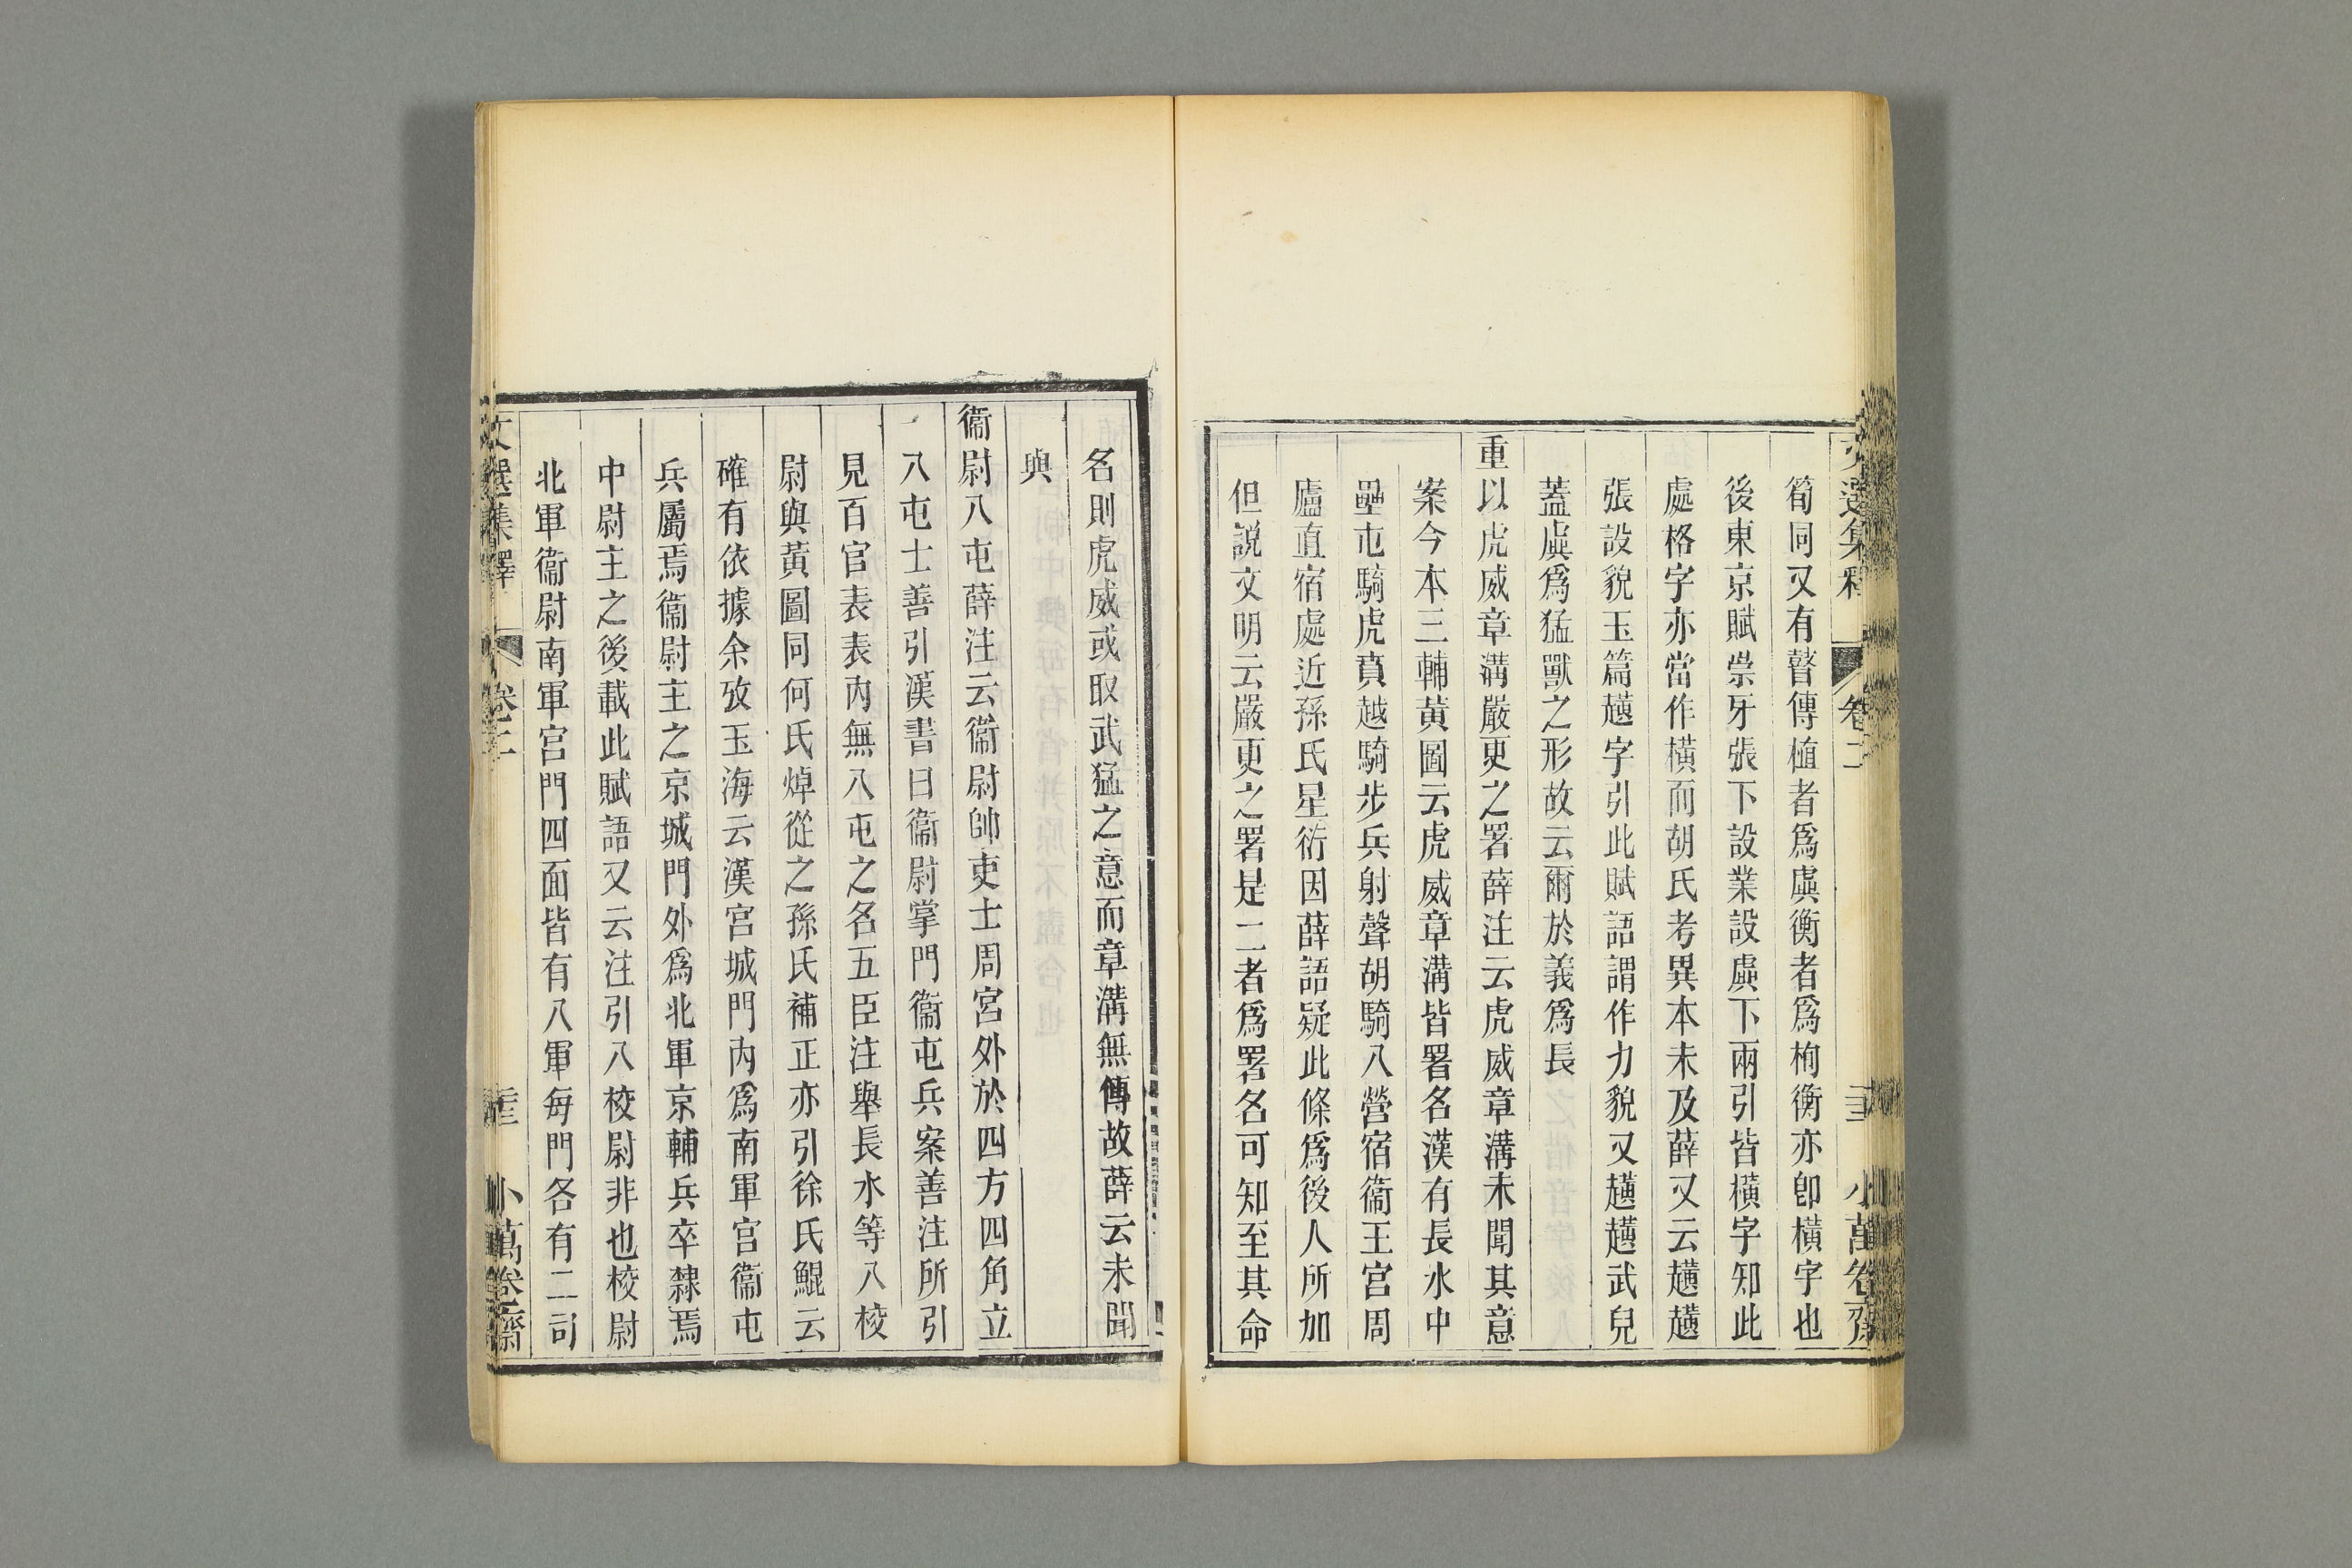 文選集釋 卷二 小萬卷齋
筍同又有瞽傳植者爲虡衡者爲栒衡亦卽橫字也
後東京賦崇牙張下設業設虡下兩引皆橫字知此
處格字亦當作橫而胡氏考異本未及薛又云趪趪
張設貌玉篇趪字引此賦語謂作力貌又趪趪武皃
蓋虡爲猛獸之形故云爾於義爲長
重以虎威章溝嚴更之署薛注云虎威章溝未聞其意
案今本三輔黃圖云虎威章溝皆署名漢有長水中
壘屯騎虎賁越騎步兵射聲胡騎八營宿衞王宮周
廬直宿處近孫氏星衍因薛語疑此條爲後人所加
但說文明云嚴更之署是二者爲署名可知至其命
名則虎威或取武猛之意而章溝無傳故薛云未聞
與
衞尉八屯薛注云衞尉帥吏士周宮外於四方四角立
八屯士善引漢書曰衞尉掌門衞屯兵案善注所引
見百官表表內無八屯之名五臣注舉長水等八校
尉與黃圖同何氏焯從之孫氏補正亦引徐氏鯤云
確有依據余攷玉海云漢宮城門內爲南軍宮衞屯
兵屬焉衞尉主之京城門外爲北軍京輔兵卒隸焉
中尉主之後載此賦語又云注引八校尉非也校尉
北軍衞尉南軍宮門四面皆有八軍每門各有二司
文選集釋 卷二 小萬卷齋